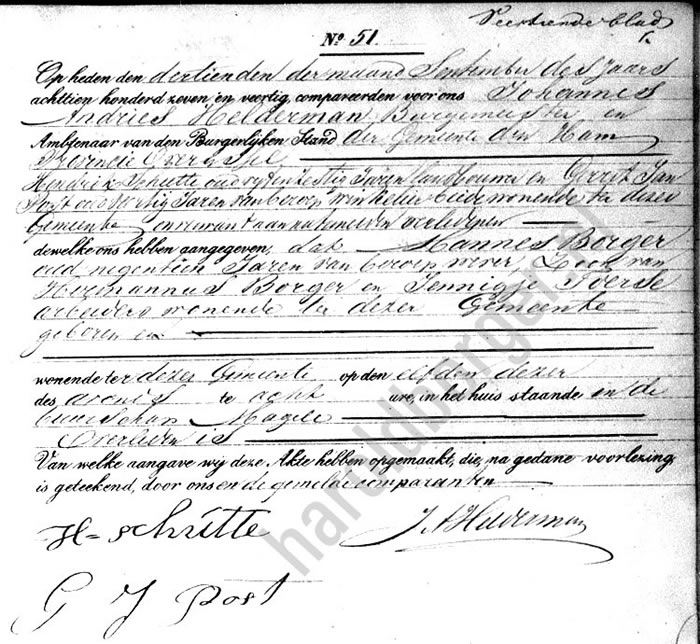 Veertiende blad
No. 51.
Op heden den dertienden der maand September des jaars
achttien honderd zeven en veertig, compareerden voor ons Johannes
Andries Helderman Burgemeester en
Ambtenaar van den Burgerlijken Stand der Gemeente den Ham
Provincie Overijssel
Hendrik Schutte oud vijf en zestig Jaren Landbouwer en Gerrit Jan
Post oud veertig Jaren van beroep winkelier beide wonende te dezer
Gemeente
dewelke ons hebben aangegeven, dat Mannes Borger
oud negentien Jaren van beroep wever, Zoon van
Hermannus Borger en Jennigje
arbeiders wonende te dezer Gemeente
geboren en
wonende ter dezer Gemeente op den elfden dezer
des avonds te acht ure, in het huis staande en de
buurschap Magele
Overleden is
Van welke aangave wij deze Akte hebben opgemaakt, die, na gedane voorlezing,
is geteekend, door ons en de gemelde comparanten
H-schutte
J A Helderman
G J Post
haruldborger.nl